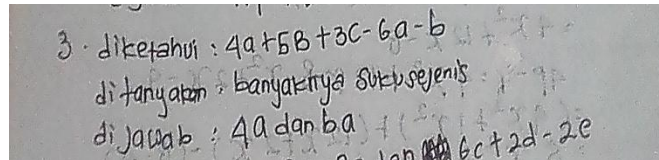 3. diketahui : 4a+5B+3C-6a-b
ditanyakan : banyaknya suku sejenis
dijawab : 4a dan ba
6c+2d-2e